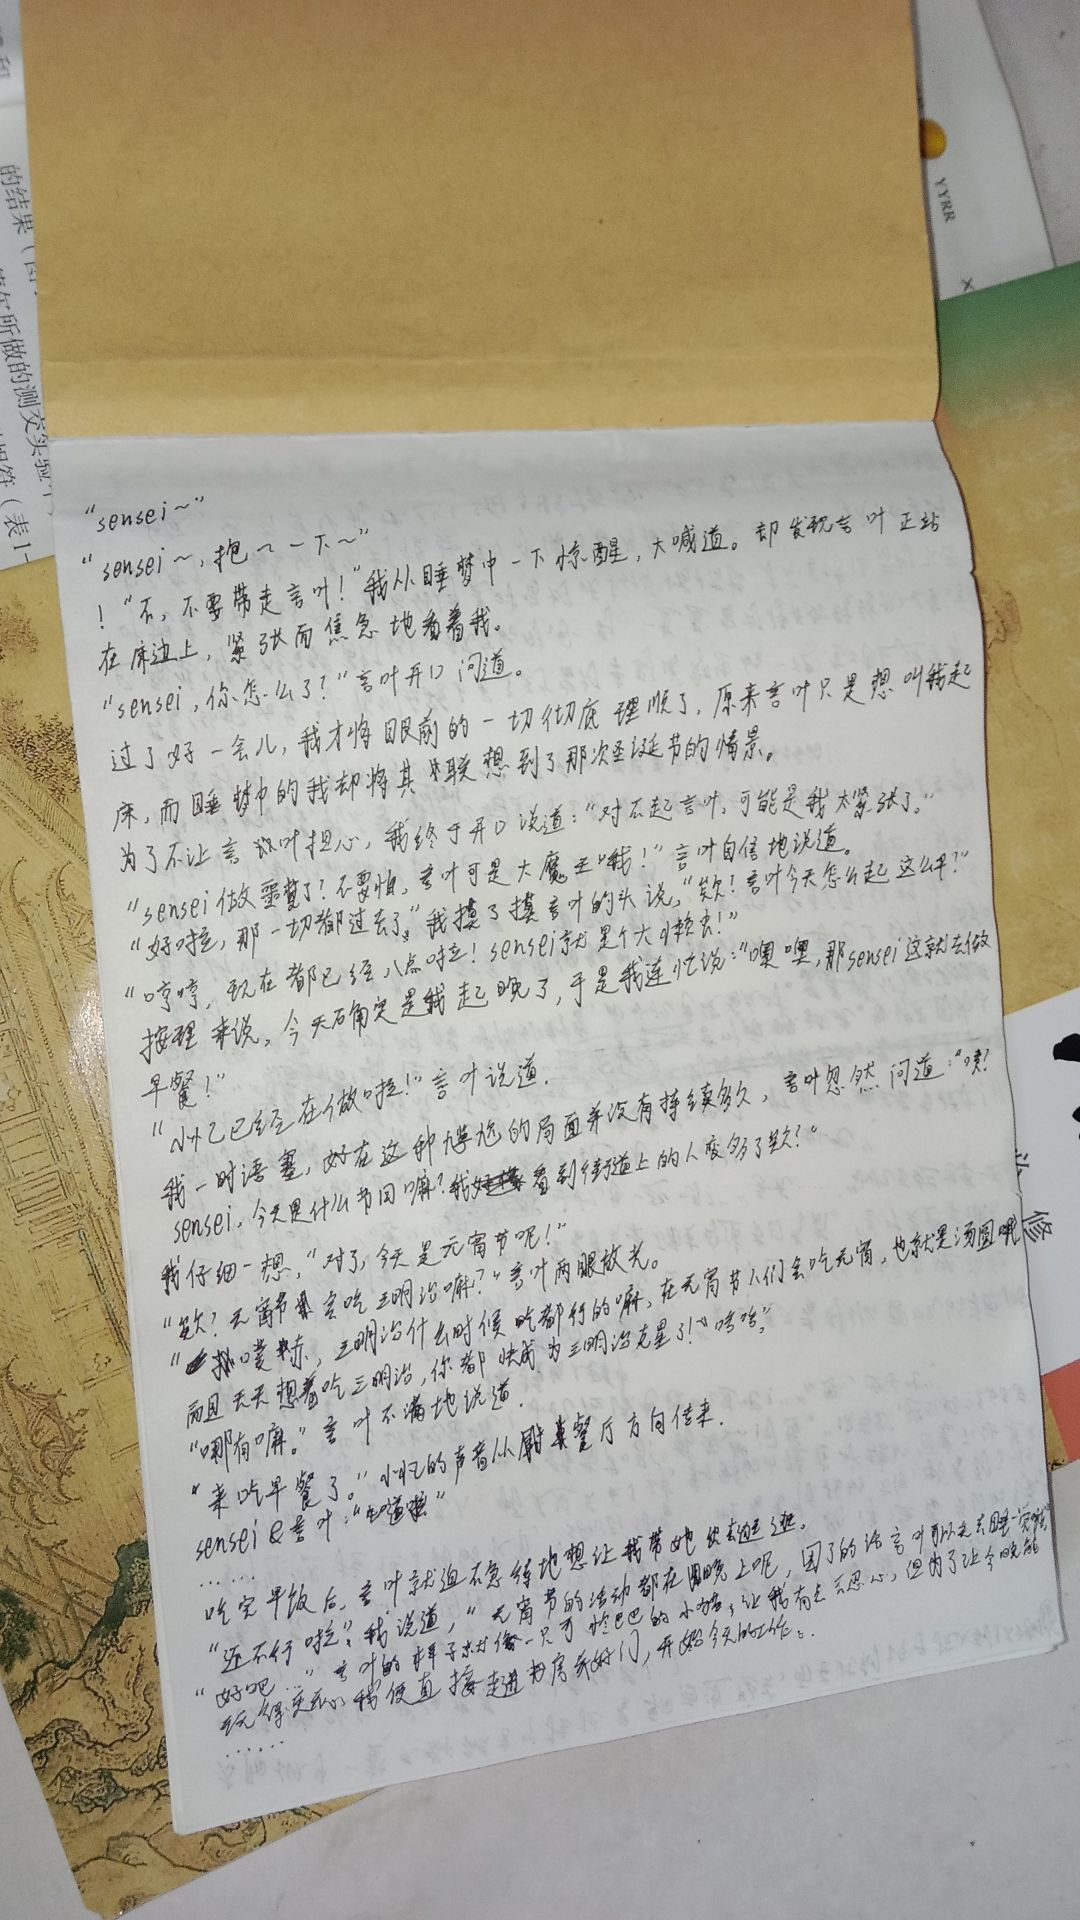 的结果（图
所做的测交实验
符（表1-
YYRR
修
"sensei～"
"sensei～，抱～一下～"
！"不，不要带走言叶！"我从睡梦中一下惊醒，大喊道。却发现言叶正站
在床边上，紧张而焦急地看着我。
"sensei，你怎么了？"言叶开口问道。
过了好一会儿，我才将眼前的一切彻底理顺了，原来言叶只是想叫我起
床，而睡梦中的我却将其联想到了那次圣诞节的情景。
为了不让言叶担心，我终于开口说道："对不起言叶，可能是我太紧张了。"
"sensei做噩梦了？不要怕，言叶可是大魔王哦！"言叶自信地说道。
"好啦，那一切都过去了。"我摸了摸言叶的头说，"欸！言叶今天怎么起这么早？"
"哼哼，现在都已经八点啦！sensei就是个大懒虫！"
按理来说，今天确实是我起晚了，于是我连忙说："噢噢，那sensei这就去做
早餐！"
"小忆已经在做啦！"言叶说道.
我一时语塞，好在这种尴尬的局面并没有持续多久，言叶忽然问道："咦？
sensei，今天是什么节日嘛？我看到街道上的人变多了欸？"
我仔细一想，"对了，今天是元宵节呢！"
"欸？元宵节会吃三明治嘛？"言叶两眼放光。
"噗，三明治什么时候吃都行的嘛，在元宵节人们会吃元宵，也就是汤圆哦
而且天天想着吃三明治，你都快成为三明治克星了！"哈哈，
"哪有嘛。"言叶不满地说道.
"来吃早餐了。"小忆的声音从餐厅方向传来.
sensei&言叶："知道啦"
......
吃完早饭后，言叶就迫不急待地想让我带她出去逛逛。
"还不行啦"，我说道，"元宵节的活动都在晚上呢，困了的话言叶可以先去睡一觉哦"
"好吧..."言叶的样子就像一只可怜巴巴的小猫，让我有点不忍心，但为了让今晚能
玩得开心，我便直接走进书房关好门，开始今天的工作。
......